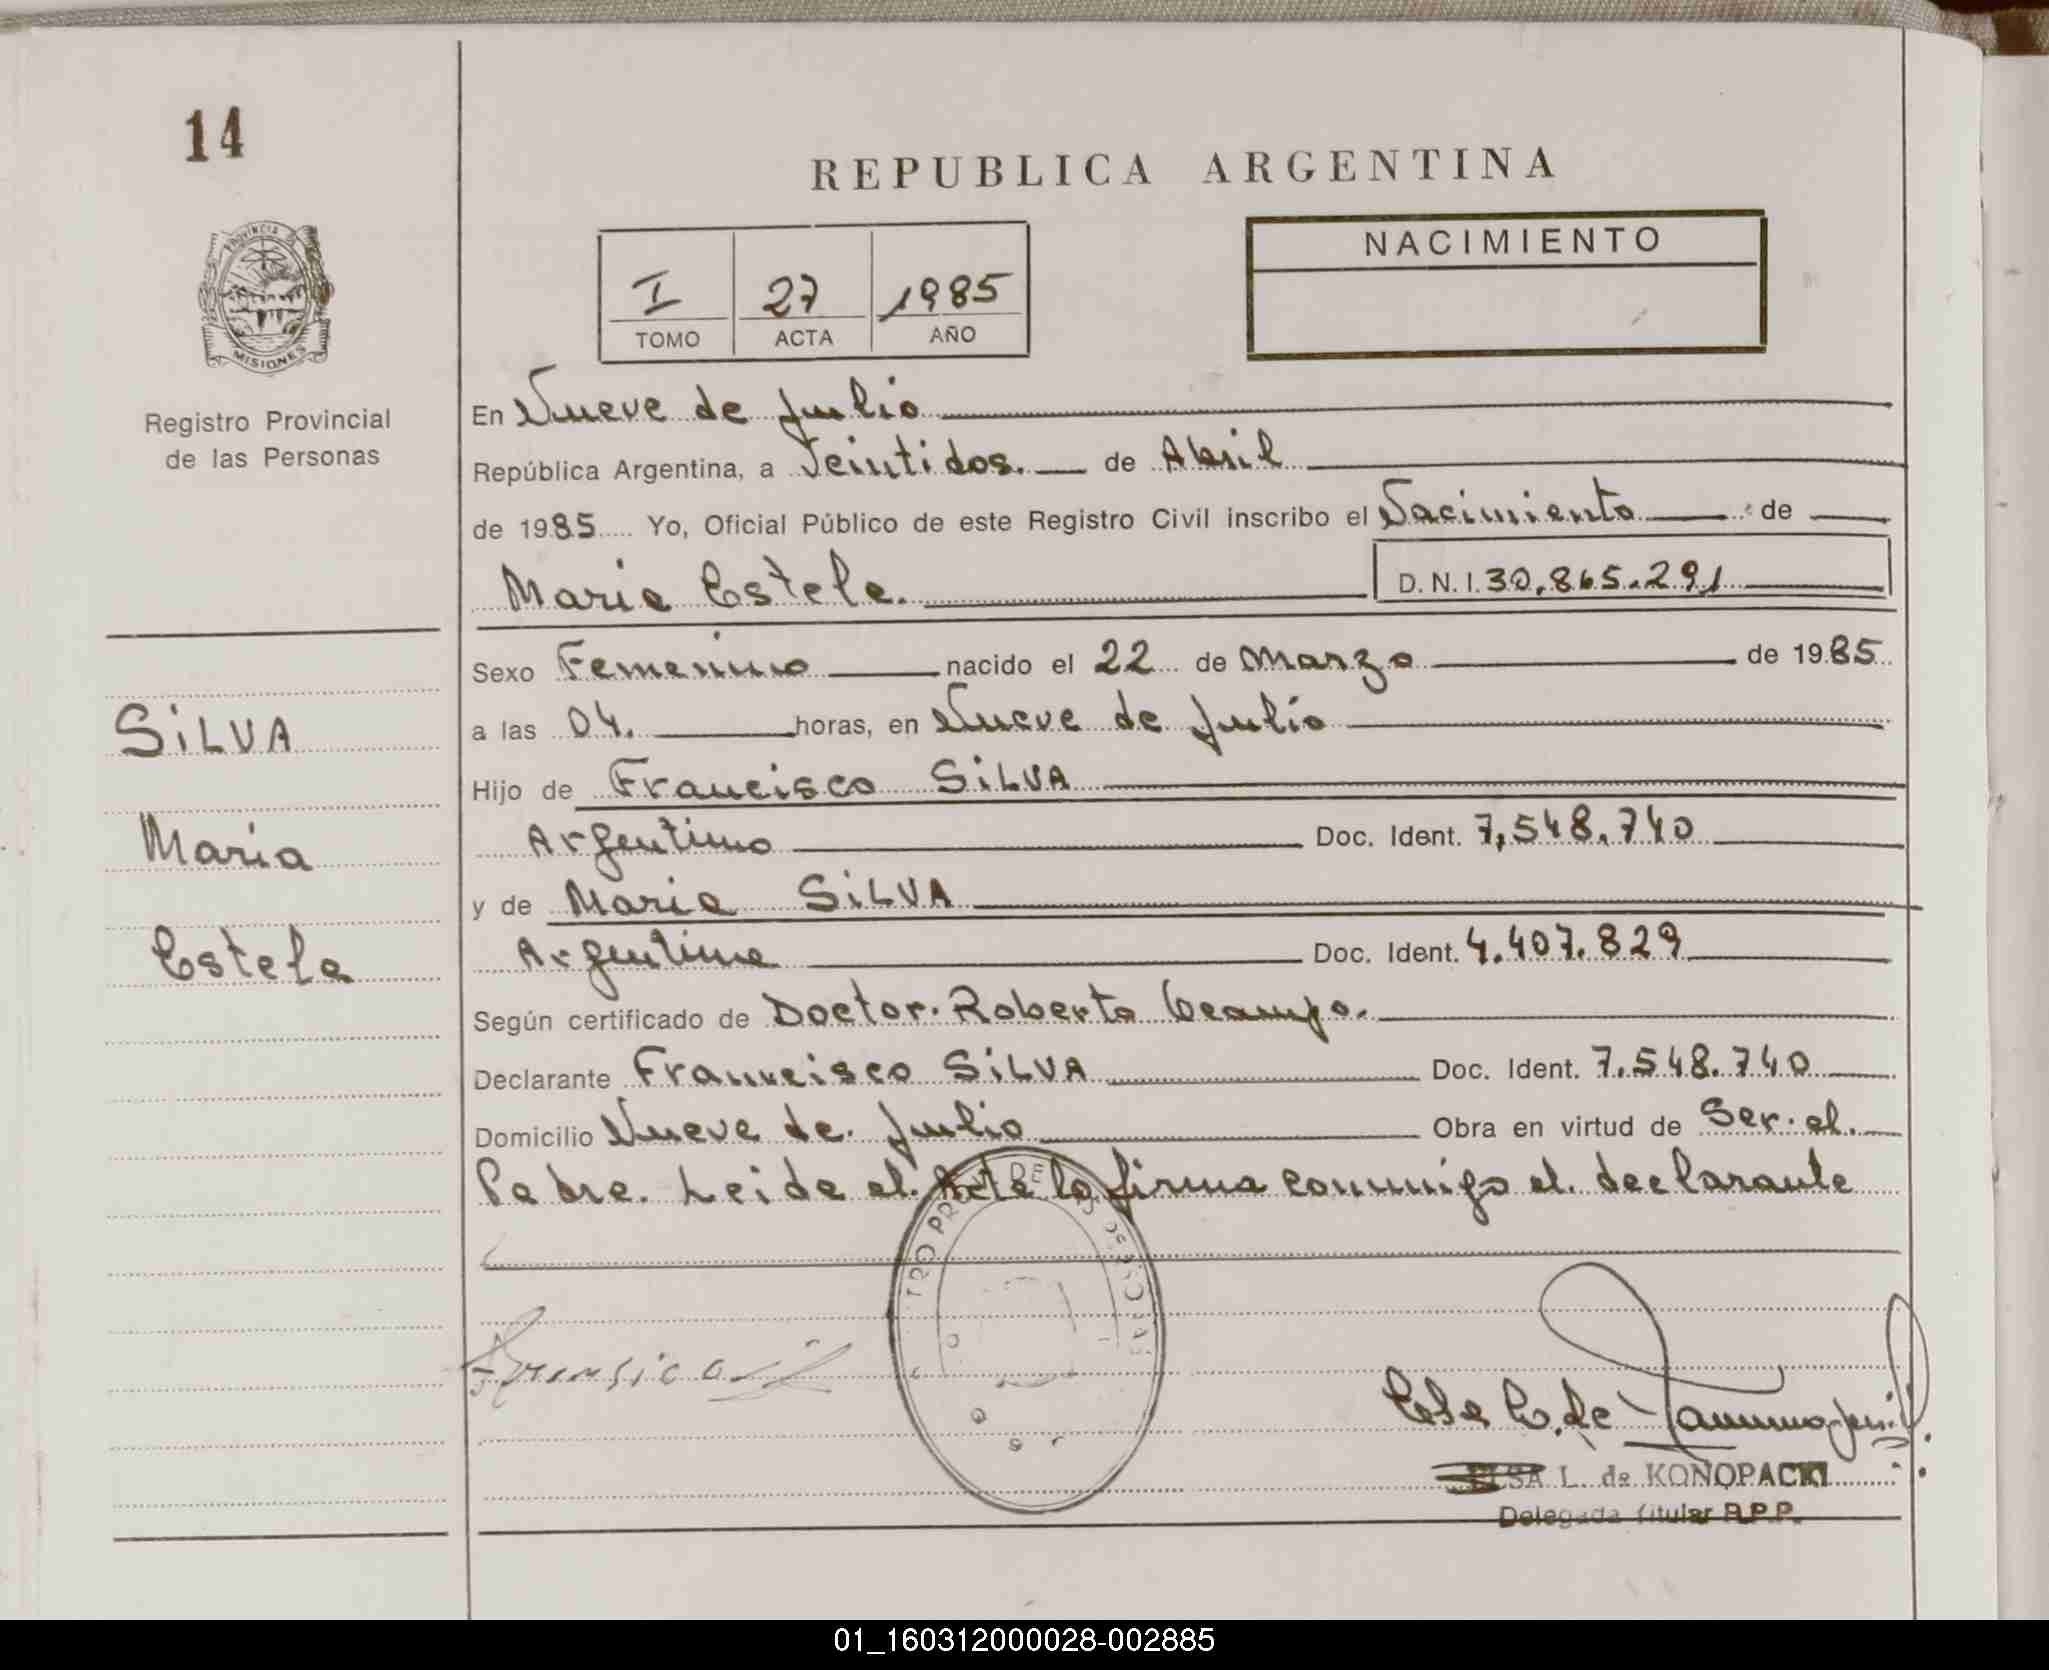 14
PROVINCIA
MISIONES
Registro Provincial
de las Personas
SiLVA
María
Estela
REPUBLICA ARGENTINA
I 27 1985
TOMO ACTA AÑO
NACIMIENTO
En Nueve de Julio
República Argentina, a Veintidos. de Abril
de 1985 Yo, Oficial Público de este Registro Civil inscribo el Nacimiento de
Maria Estela. D.N.I. 30.865.291
Sexo Femenino nacido el 22 de Marzo de 1985
a las 04. horas, en Nueve de Julio
Hijo de Francisco SiLVA
Argentino Doc. Ident. 7.548.740
y de Maria SiLVA
Argentina Doc. Ident. 4.407.829
Según certificado de Doctor. Roberto Ocampo.
Declarante Francisco SiLVA Doc. Ident. 7.548.740
Domicilio Nueve de Julio Obra en virtud de Ser. el.
Padre. Leida el. Acta la firma conmigo el. declarante
TRO PR DE LAS PERSONAS
ELSA L. de KONOPACKI
Delegada Titular R.P.P.
01_160312000028-002885